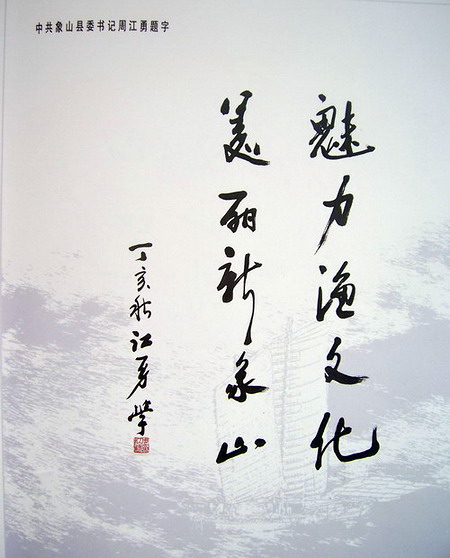 中共象山县委书记周江勇题字
魅力渔文化
美丽新象山
丁亥秋江勇学